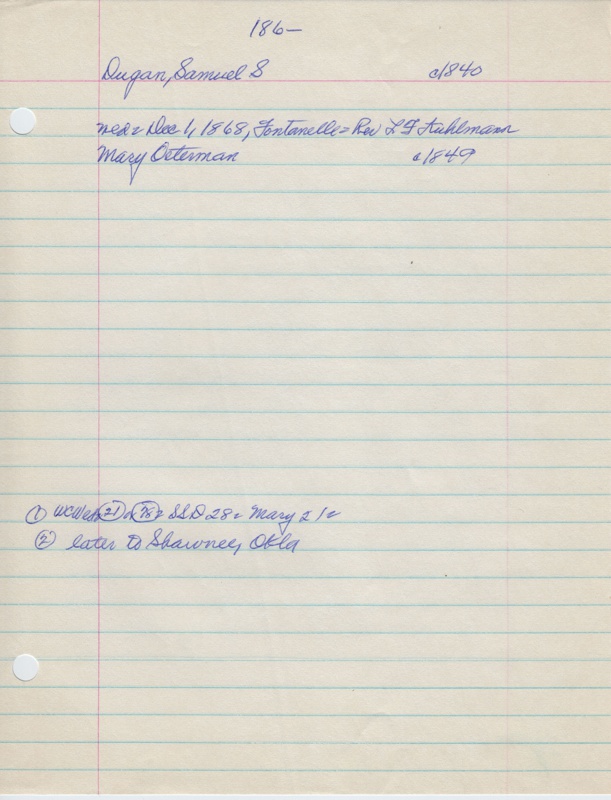 186—
Dugan, Samuel S c1840
med= Dec 1, 1868, Fontanelle= Rev L F Kuhlmann
Mary Osterman c1849
① 21 78= SSD 28= Mary 21=
② later to Shawnee, Okla